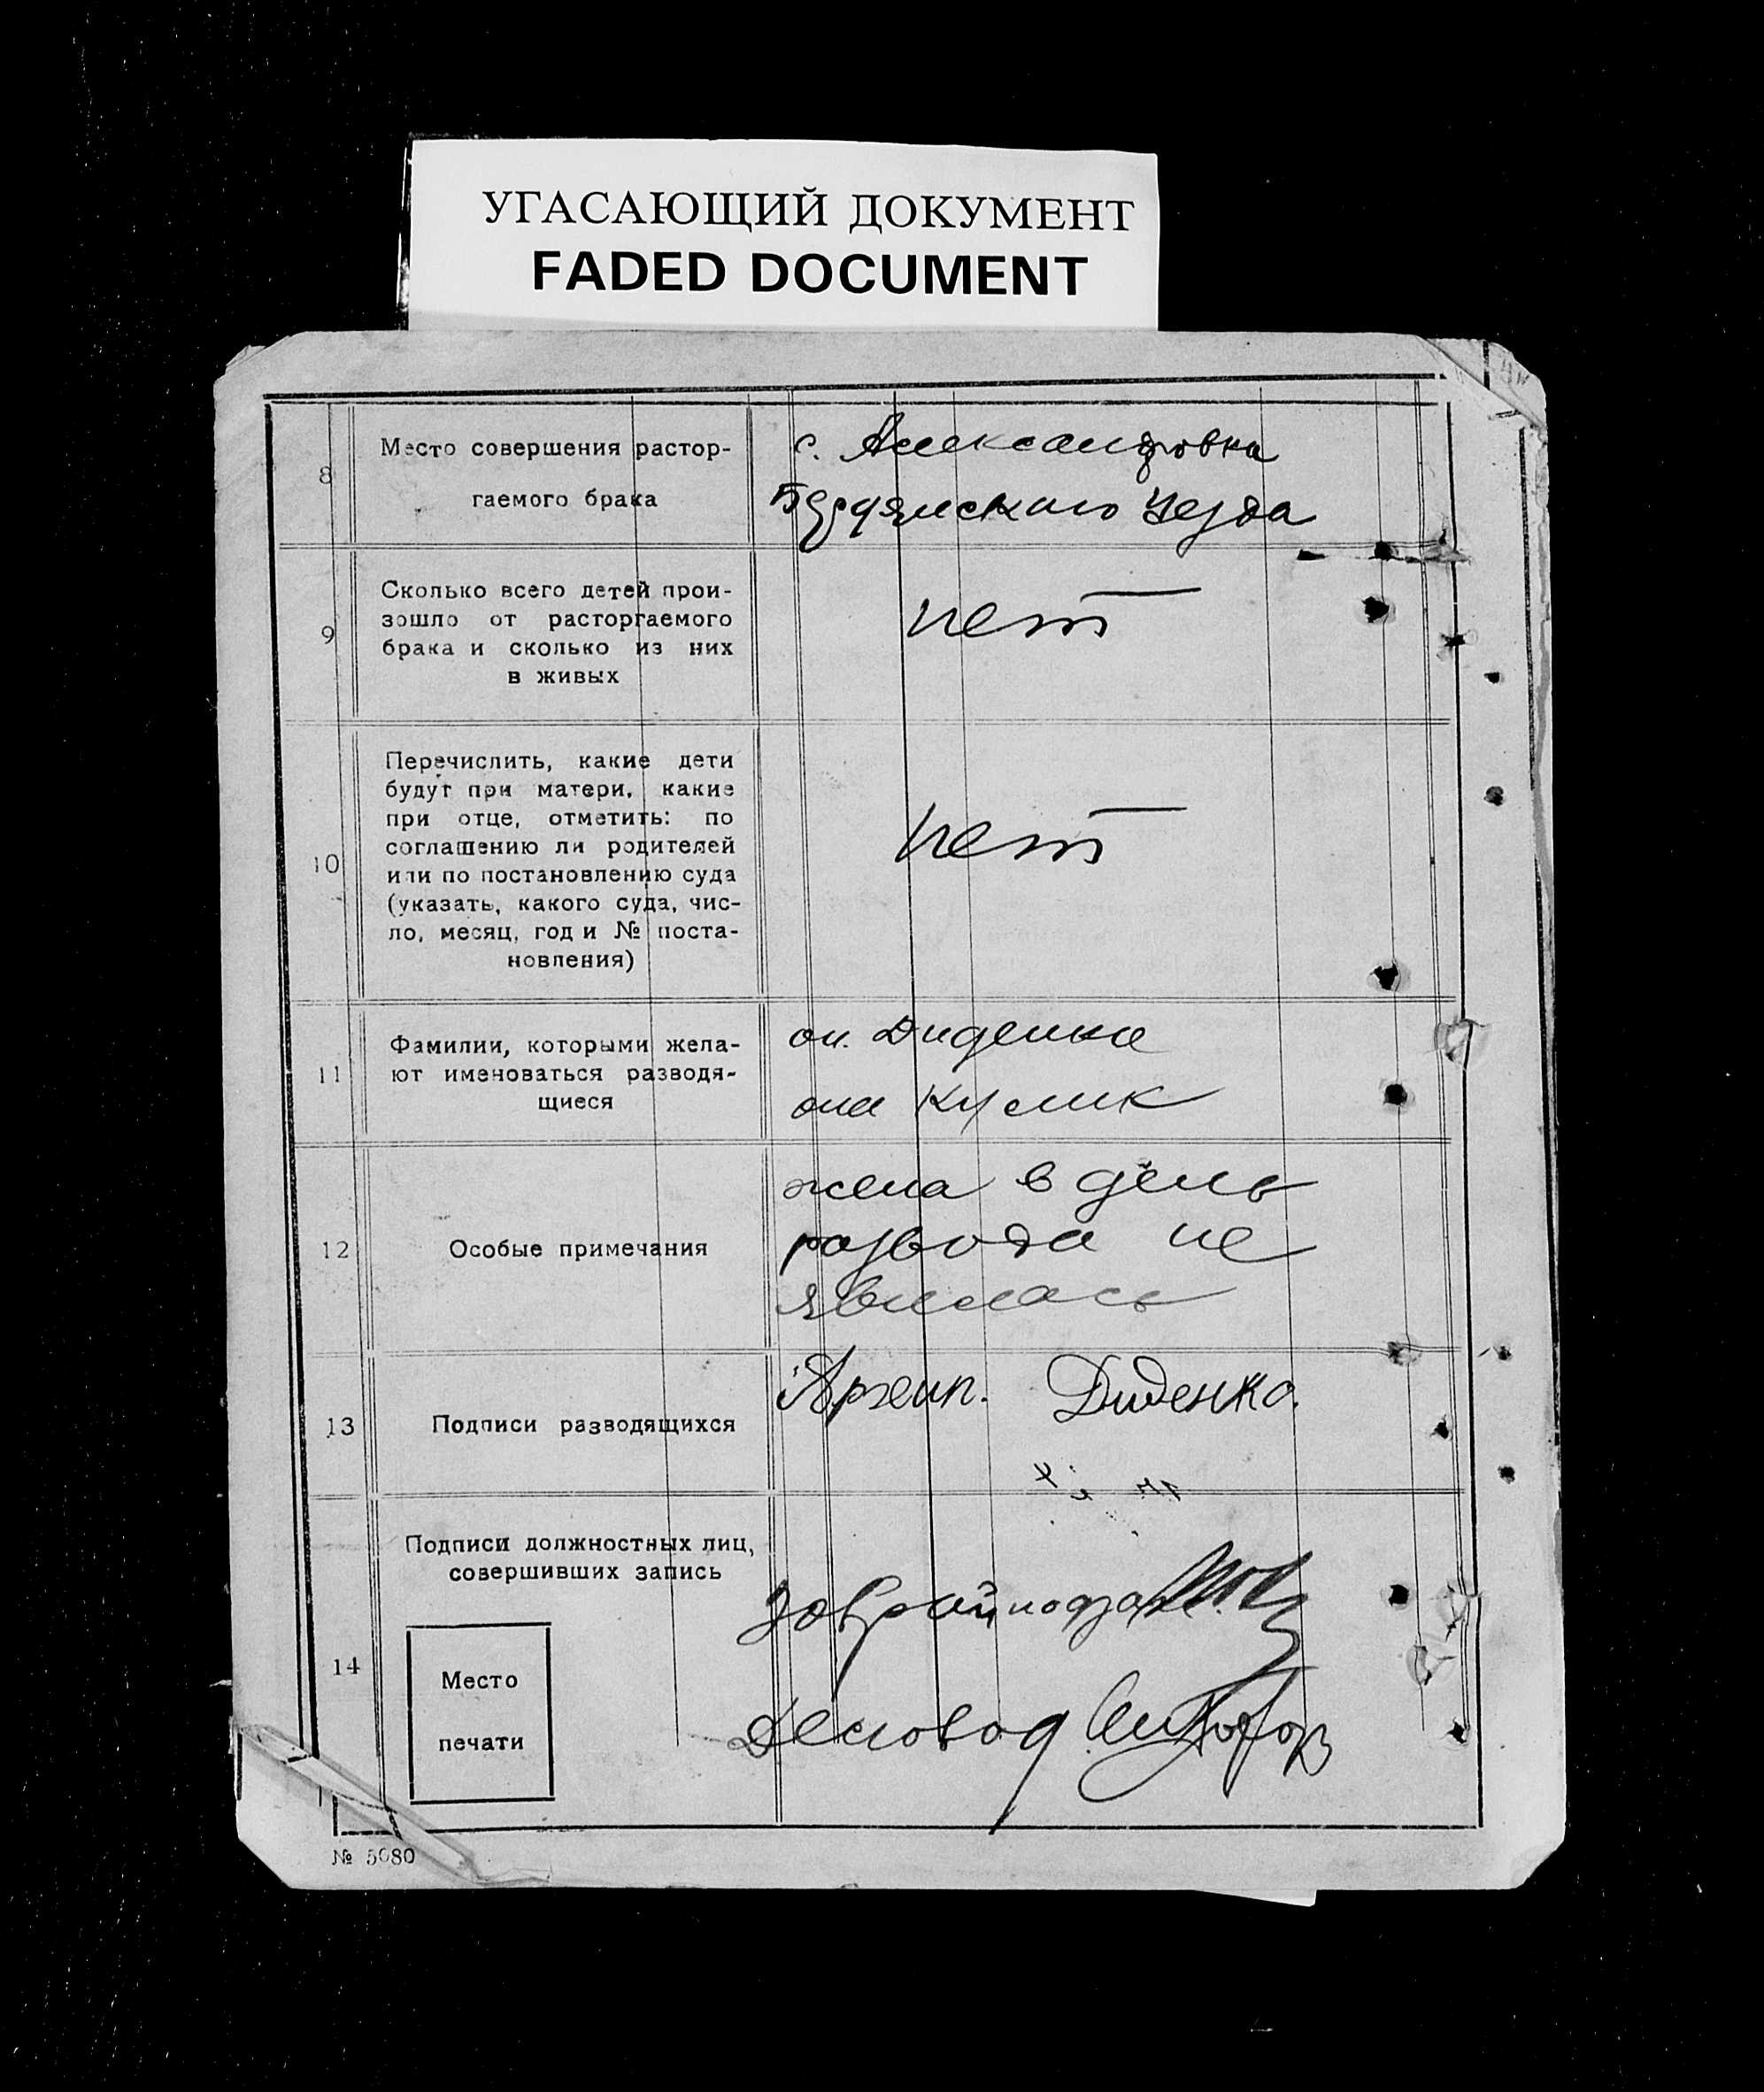 УГАСАЮЩИЙ ДОКУМЕНТ
FADED DOCUMENT
8
Место совершения растор-
гаемого брака
с. Александровка
Бердянского Уезда
9
Сколько всего детей прои-
зошло от расторгаемого
брака и сколько из них
в живых
нет
10
Перечислить, какие дети
будут при матери, какие
при отце, отметить: по
соглашению ли родителей
или по постановлению суда
(указать, какого суда, чис-
ло, месяц, год и № поста-
новления)
нет
11
Фамилии, которыми жела-
ют именоваться разводя-
щиеся
он Диденко
она Кулик
12
Особые примечания
жена в день
развода не
явилась
13
Подписи разводящихся
Архип. Диденко.
14
Подписи должностных лиц,
совершивших запись
Место
печати
Зав
Деловод
№ 5080